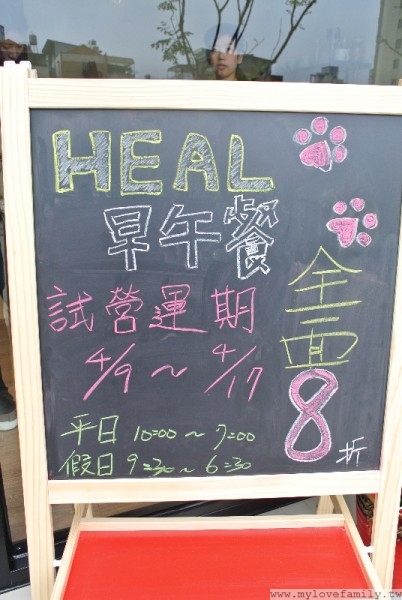 HEAL
早午餐
試營運期
4/9～4/17
平日 10:00～7:00
假日 9:30～6:30
全面8折
www.mylovefamily.tw